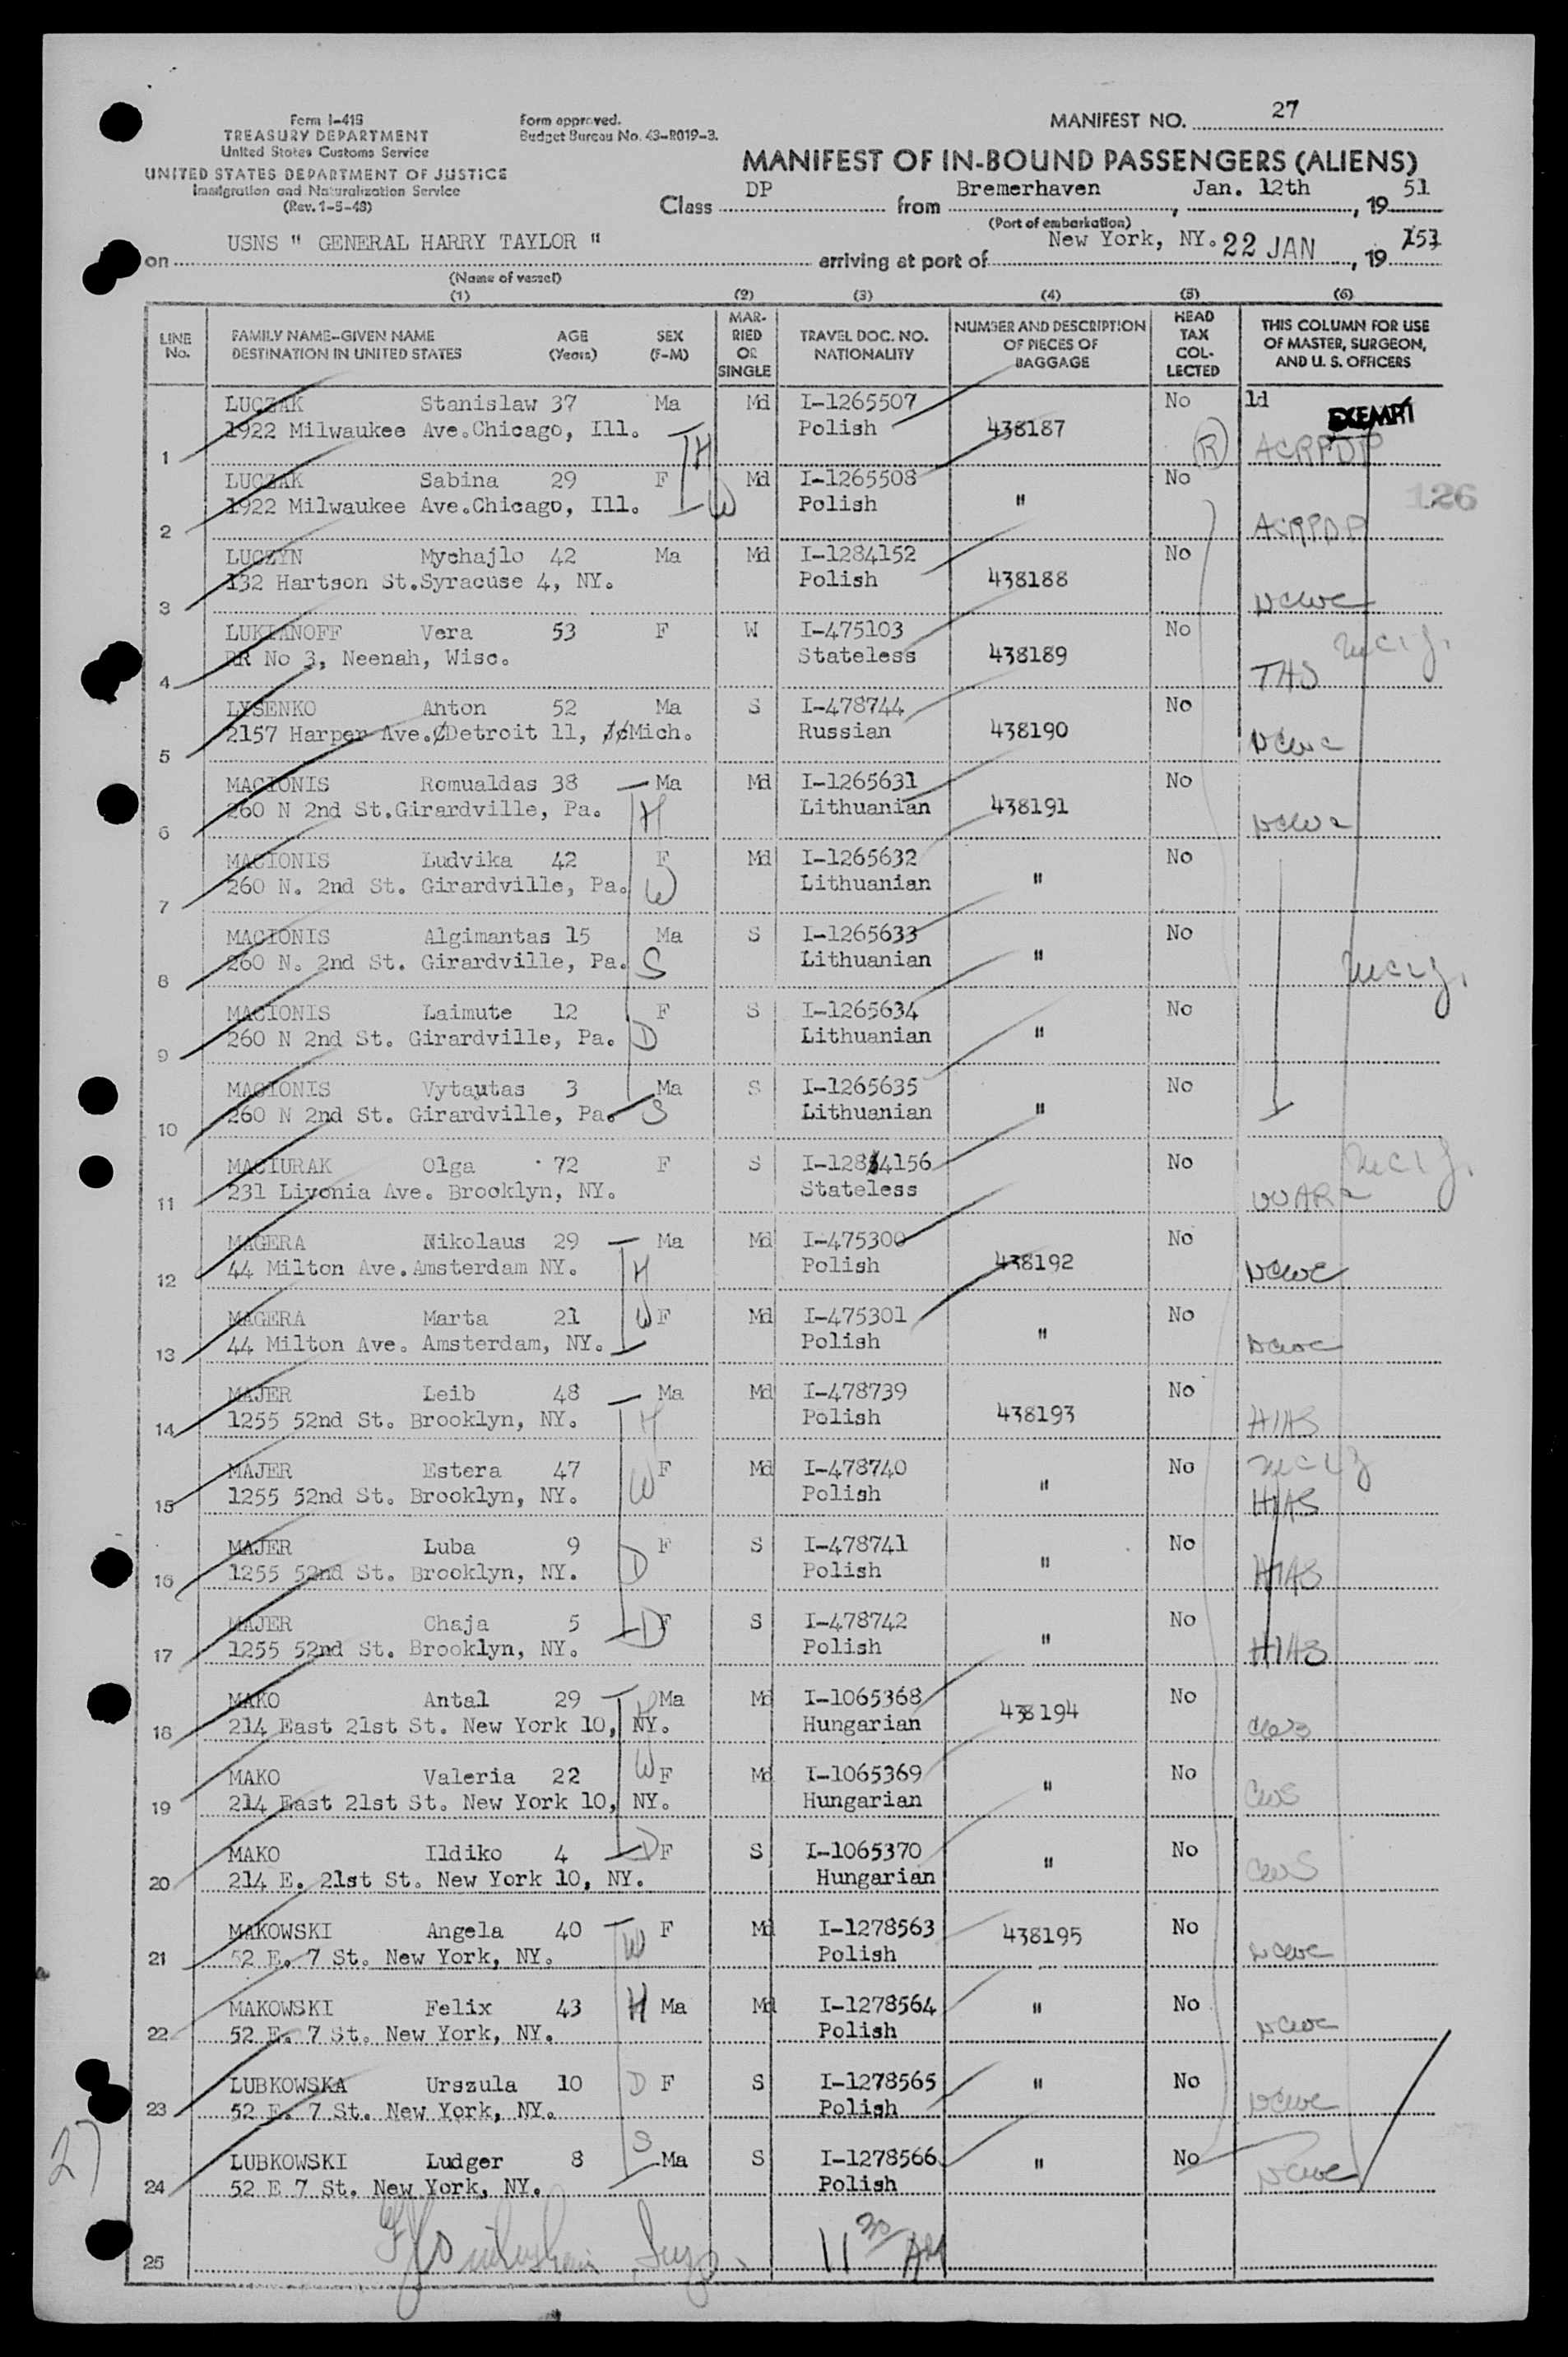 Form I-418
TREASURY DEPARTMENT
United States Customs Service
UNITED STATES DEPARTMENT OF JUSTICE
Immigration and Naturalization Service
(Rev. 1-5-48)
Form approved.
Budget Bureau No. 43-R019-3.
MANIFEST NO. 27
MANIFEST OF IN-BOUND PASSENGERS (ALIENS)
Class DP from Bremerhaven, Jan. 12th, 19 51
(Port of embarkation)
on USNS " GENERAL HARRY TAYLOR " arriving at port of New York, NY. 22 JAN, 19 151
(Name of vessel)
(1) (2) (3) (4) (5) (6)
LINE No. FAMILY NAME-GIVEN NAME DESTINATION IN UNITED STATES AGE (Years) SEX (F-M) MARRIED OR SINGLE TRAVEL DOC. NO. NATIONALITY NUMBER AND DESCRIPTION OF PIECES OF BAGGAGE HEAD TAX COLLECTED THIS COLUMN FOR USE OF MASTER, SURGEON, AND U. S. OFFICERS
LUCZAK Stanislaw 37 Ma Md I-1265507 No ld EXEMPT
1 1922 Milwaukee Ave.Chicago, Ill. H Polish 438187 R ACRPDP
LUCZAK Sabina 29 F W Md I-1265508 No 126
2 1922 Milwaukee Ave.Chicago, Ill. Polish " ACRPDP
LUCZYN Mychajlo 42 Ma Md I-1284152 No
3 132 Hartson St.Syracuse 4, NY. Polish 438188 NCWC
LUKIANOFF Vera 53 F W I-475103 No
4 RR No 3, Neenah, Wisc. Stateless 438189
LYSENKO Anton 52 Ma S I-478744 No
5 2157 Harper Ave. Detroit 11, Mich. Russian 438190 NCWC
MACIONIS Romualdas 38 Ma Md I-1265631 No
6 260 N 2nd St.Girardville, Pa. H Lithuanian 438191 NCWC
MACIONIS Ludvika 42 F Md I-1265632 No
7 260 N. 2nd St. Girardville, Pa. W Lithuanian "
MACIONIS Algimantas 15 Ma S I-1265633 No
8 260 N. 2nd St. Girardville, Pa. S Lithuanian "
MACIONIS Laimute 12 F S I-1265634 No
9 260 N 2nd St. Girardville, Pa. D Lithuanian "
MACIONIS Vytautas 3 Ma S I-1265635 No
10 260 N 2nd St. Girardville, Pa. S Lithuanian "
MACIURAK Olga 72 F S I-1284156 No
11 231 Livonia Ave. Brooklyn, NY. Stateless
MAGERA Nikolaus 29 Ma Md I-475300 No
12 44 Milton Ave.Amsterdam NY. H Polish 438192 NCWC
MAGERA Marta 21 W F Md I-475301 No
13 44 Milton Ave. Amsterdam, NY. Polish " NCWC
MAJER Leib 48 Ma Md I-478739 No
14 1255 52nd St. Brooklyn, NY. H Polish 438193 HIAS
MAJER Estera 47 F Md I-478740 No
15 1255 52nd St. Brooklyn, NY. W Polish " HIAS
MAJER Luba 9 F S I-478741 No
16 1255 52nd St. Brooklyn, NY. D Polish " HIAS
MAJER Chaja 5 D F S I-478742 No
17 1255 52nd St. Brooklyn, NY. Polish " HIAS
MAKO Antal 29 H Ma Md I-1065368 No
18 214 East 21st St. New York 10, NY. Hungarian 438194 CWS
MAKO Valeria 22 W F Md I-1065369 No
19 214 East 21st St. New York 10, NY. Hungarian " CWS
MAKO Ildiko 4 D F S I-1065370 No
20 214 E. 21st St. New York 10, NY. Hungarian " CWS
MAKOWSKI Angela 40 F Md I-1278563 438195 No
21 52 E. 7 St. New York, NY. W Polish NCWC
MAKOWSKI Felix 43 H Ma Md I-1278564 " No
22 52 E. 7 St. New York, NY. Polish NCWC
LUBKOWSKA Urszula 10 D F S I-1278565 " No
23 52 E. 7 St. New York, NY. Polish NCWC
LUBKOWSKI Ludger 8 S Ma S I-1278566 " No
24 52 E 7 St. New York, NY. Polish NCWC
25 11 30 AM
27